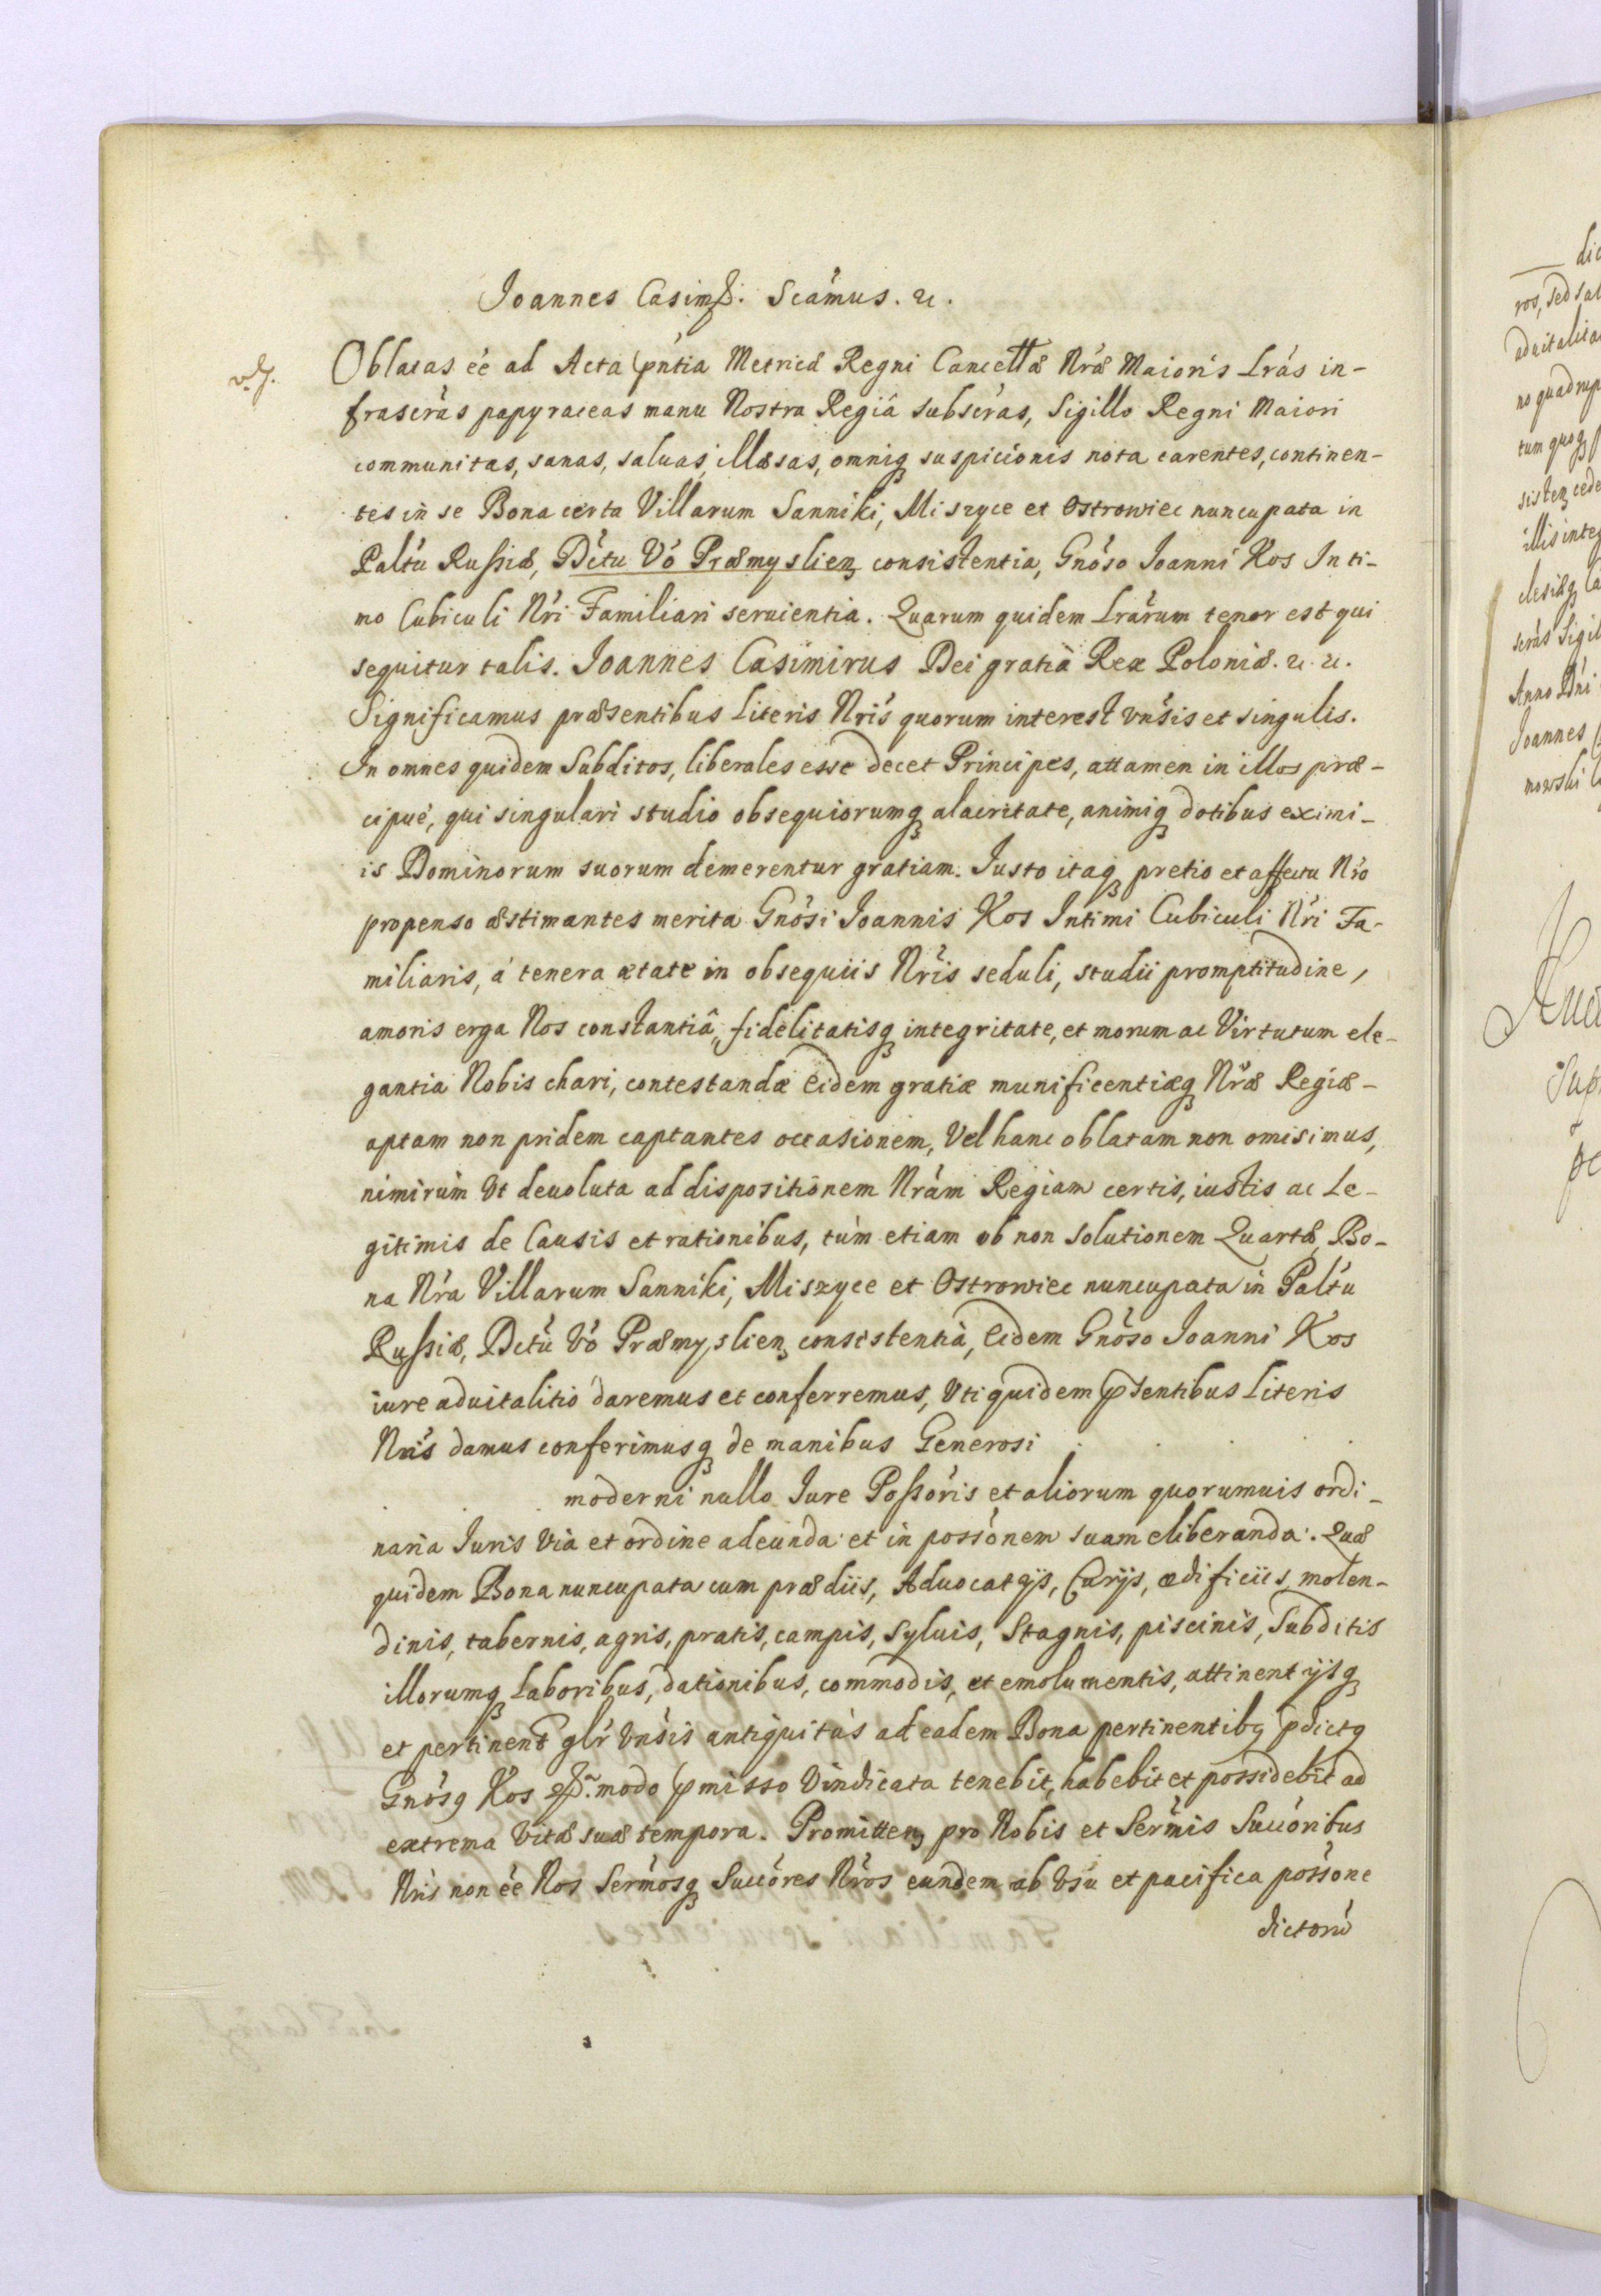 Joannes Casimś. Scámus. &c.
Oblatas éé ad Acta pńtia Metricæ Regni Cancellæ Nræ Maioris Lrás in-
frascrás papyraceas manu Nostra Regiâ subscras, Sigillo Regni Maiori
communitas, sanas, saluas, illæsas, omniq suspicionis nota carentes, continen-
tes in se Bona certa Villarum Sanniki, Miszyce et Ostrowiec nuncupata in
Paltú Russiæ, Dctu Vó Præmyslien consistentia, Gnóso Joanni Kos Inti-
mo Cubiculi Nri Familiari seruientia. Quarum quidem Lrarum tenor est qui
sequitur talis. Joannes Casimirus Dei gratià Rex Poloniæ. &c. &c.
Significamus præsentibus Literis Nris quorum interest vnsis et singulis.
In omnes quidem Subditos, liberales esse decet Principes, attamen in illos præ-
cipuè, qui singulari studio obsequiorumq alacritate, animiq dotibus eximi-
is Dominorum suorum demerentur gratiam. Iusto itaq pretio et affectu Nro
propenso æstimantes merita Gnósi Joannis Kos Intimi Cubiculi Nri Fa-
miliaris, á tenera ætate in obsequiis Nris seduli, studii promptitudine,
amoris erga Nos constantiâ, fidelitatisq integritate, et morum ac Virtutum ele-
gantia Nobis chari, contestandæ Eidem gratiæ munificentiæq Nræ Regiæ-
aptam non pridem captantes occasionem, Vel hanc oblatam non omisimus,
nimirum Vt deuoluta ad dispositionem Nrám Regiam certis, iustis ac Le-
gitimis de Causis et rationibus, túm etiam ob non Solutionem Quartæ, Bo-
na Nra Villarum Sanniki, Miszyce et Ostrowiec nuncupata in Paltú
Russiæ, Dctú Vó Præmyslien consistentià, Eidem Gnóso Joanni Kos
iure aduitalitió daremus et conferremus, Vti quidem psentibus Literis
Nris damus conferimusq de manibus Generosi
moderni nullo Iure Possoris et aliorum quorumuis ordi-
naria Iuris Via et ordine adeunda et in possonem suam eliberanda. Quæ
quidem Bona nuncupata cum prædiis, Aduocatijs, Curijs, ædificiis, molen-
dinis, tabernis, agris, pratis, campis, Syluis, Stagnis, piscinis, Subditis
illorumq Laboribus, dationibus, commodis, et emolumentis, attinentijsq
et pertinent glr vnsis antiquitùs ad eadem Bona pertinentibq pdictq
Gnósq Kos modo pmisso Vindicata tenebit, habebit et possidebit ad
extrema Vitæ suæ tempora. Promitten pro Nobis et Sermis Succoribus
Nris non éé Nos Sermosq Succores Nros eundem ab Vsu et pacifica possone
dictorú